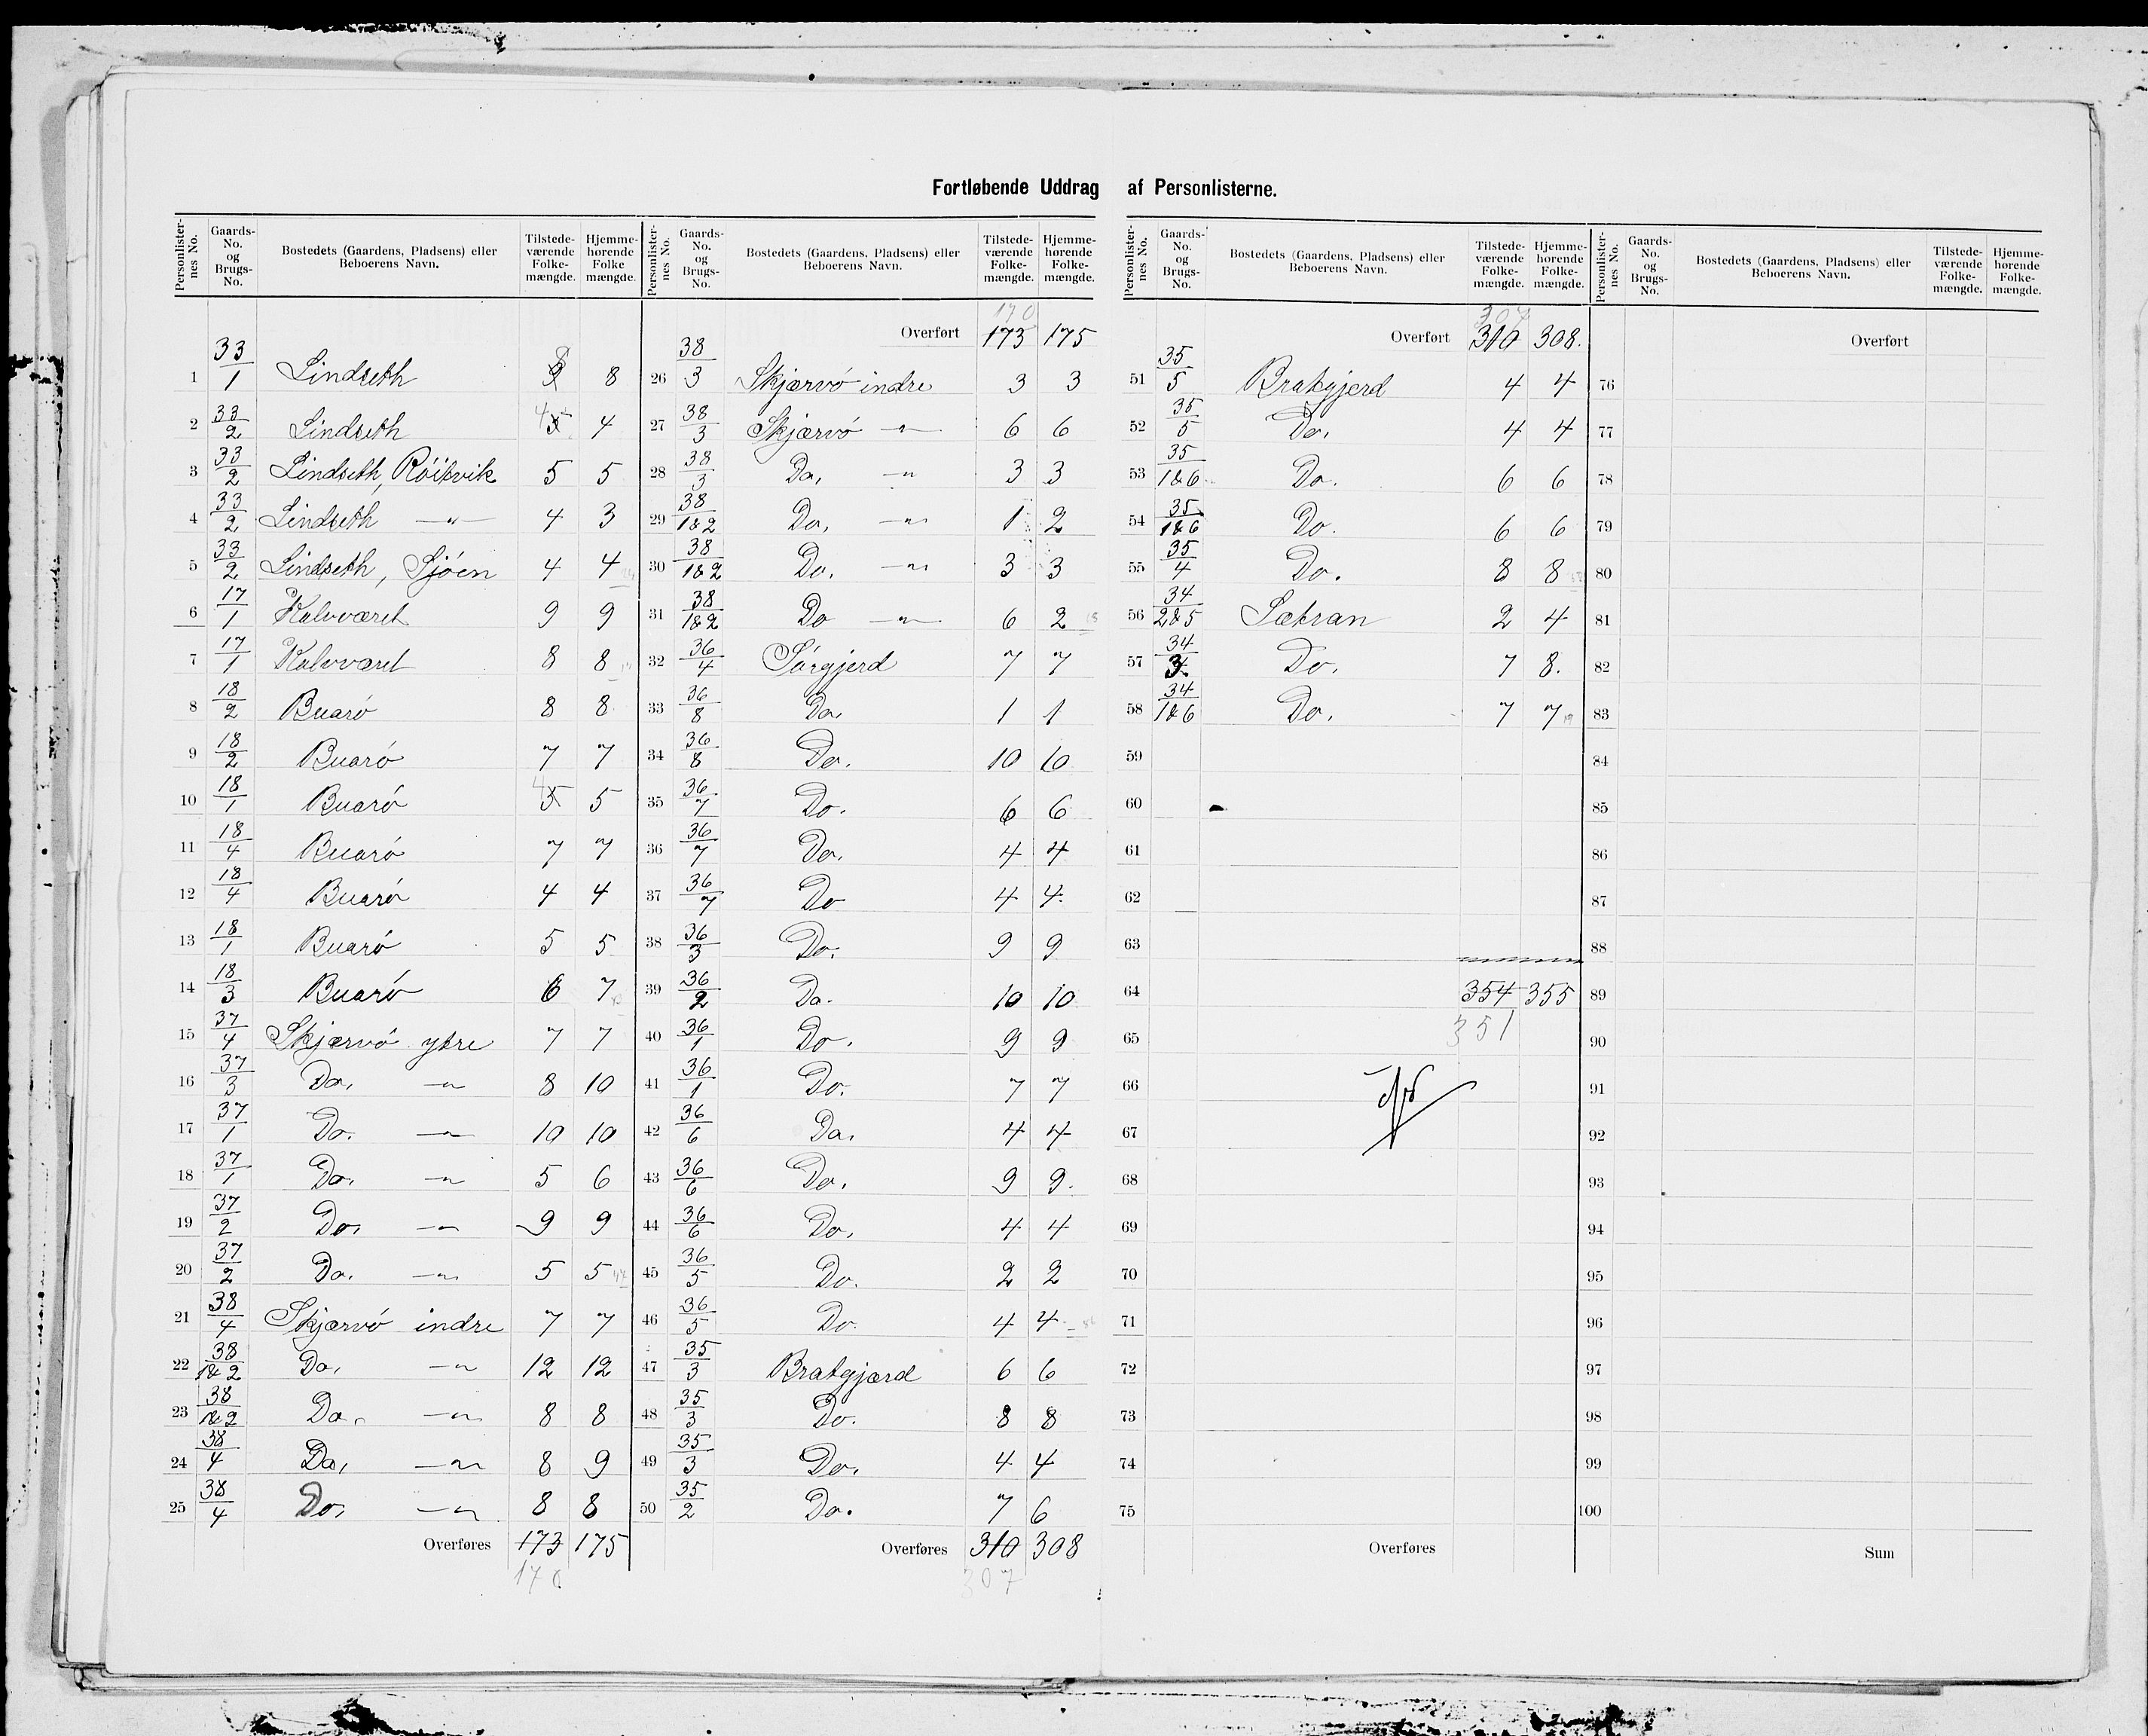 Fortløbende Uddrag af Personlisterne.
Personlisternes No. | Gaards-No. og Brugs-No. | Bostedets (Gaardens, Pladsens) eller Beboerens Navn. | Tilstedeværende Folkemængde. | Hjemmehørende Folkemængde.
1 | 33/1 | Lindseth | 9 8 | 8
2 | 33/2 | Lindseth | 5 4 | 4
3 | 33/2 | Lindseth, Röikvik | 5 | 5
4 | 33/2 | Lindseth —"— | 4 | 3
5 | 33/2 | Lindseth, Sjöen | 4 | 4
6 | 17/1 | Kalvväret | 9 | 9
7 | 17/1 | Kalvväret | 8 | 8
8 | 18/2 | Buarö | 8 | 8
9 | 18/2 | Buarö | 7 | 7
10 | 18/1 | Buarö | 5 4 | 5
11 | 18/4 | Buarö | 7 | 7
12 | 18/4 | Buarö | 4 | 4
13 | 18/1 | Buarö | 5 | 5
14 | 18/3 | Buarö | 6 | 7
15 | 37/4 | Skjærvö ytre | 7 | 7
16 | 37/3 | Do, —"— | 8 | 10
17 | 37/1 | Do. —"— | 10 | 10
18 | 37/1 | Do, —"— | 5 | 6
19 | 37/2 | Do, —"— | 9 | 9
20 | 37/2 | Do. —"— | 5 | 5
21 | 38/4 | Skjærvö indre | 7 | 7
22 | 38/1&2 | Do, —"— | 12 | 12
23 | 38/1&2 | Do, —"— | 8 | 8
24 | 38/4 | Do, —"— | 8 | 9
25 | 38/4 | Do, —"— | 8 | 8
Overføres | 173 | 175
170
170
Overført | 173 | 175
26 | 38/3 | Skjærvö indre | 3 | 3
27 | 38/3 | Skjærvö —"— | 6 | 6
28 | 38/3 | Do, —"— | 3 | 3
29 | 38/1&2 | Do, —"— | 1 | 2
30 | 38/1&2 | Do. —"— | 3 | 3
31 | 38/1&2 | Do —"— | 6 | 2
32 | 36/4 | Sörgjerd | 7 | 7
33 | 36/8 | Do, | 1 | 1
34 | 36/8 | Do. | 10 | 10
35 | 36/7 | Do. | 6 | 6
36 | 36/7 | Do. | 4 | 4
37 | 36/7 | Do | 4 | 4
38 | 36/3 | Do. | 9 | 9
39 | 36/2 | Do. | 10 | 10
40 | 36/1 | Do. | 9 | 9
41 | 36/1 | Do. | 7 | 7
42 | 36/6 | Do, | 4 | 4
43 | 36/6 | Do, | 9 | 9.
44 | 36/6 | Do, | 4 | 4
45 | 36/5 | Do. | 2 | 2
46 | 36/5 | Do. | 4 | 4
47 | 35/3 | Bratgjærd | 6 | 6
48 | 35/3 | Do. | 8 | 8
49 | 35/3 | Do, | 4 | 4
50 | 35/2 | Do. | 7 | 6
Overføres | 310 | 308
307
307
Overført | 310 | 308.
51 | 35/5 | Bratgjerd | 4 | 4
52 | 35/5 | Do, | 4 | 4
53 | 35/1&6 | Do. | 6 | 6
54 | 35/1&6 | Do. | 6 | 6
55 | 35/4 | Do. | 8 | 8
56 | 34/2&5 | Sætran | 2 | 4
57 | 34/3 | Do, | 7 | 8.
58 | 34/1&6 | Do, | 7 | 7
59
60
61
62
63
64 | 354 | 355
65 | 351
66
67
68
69
70
71
72
73
74
75
Overføres
Overført
76
77
78
79
80
81
82
83
84
85
86
87
88
89
90
91
92
93
94
95
96
97
98
99
100
Sum